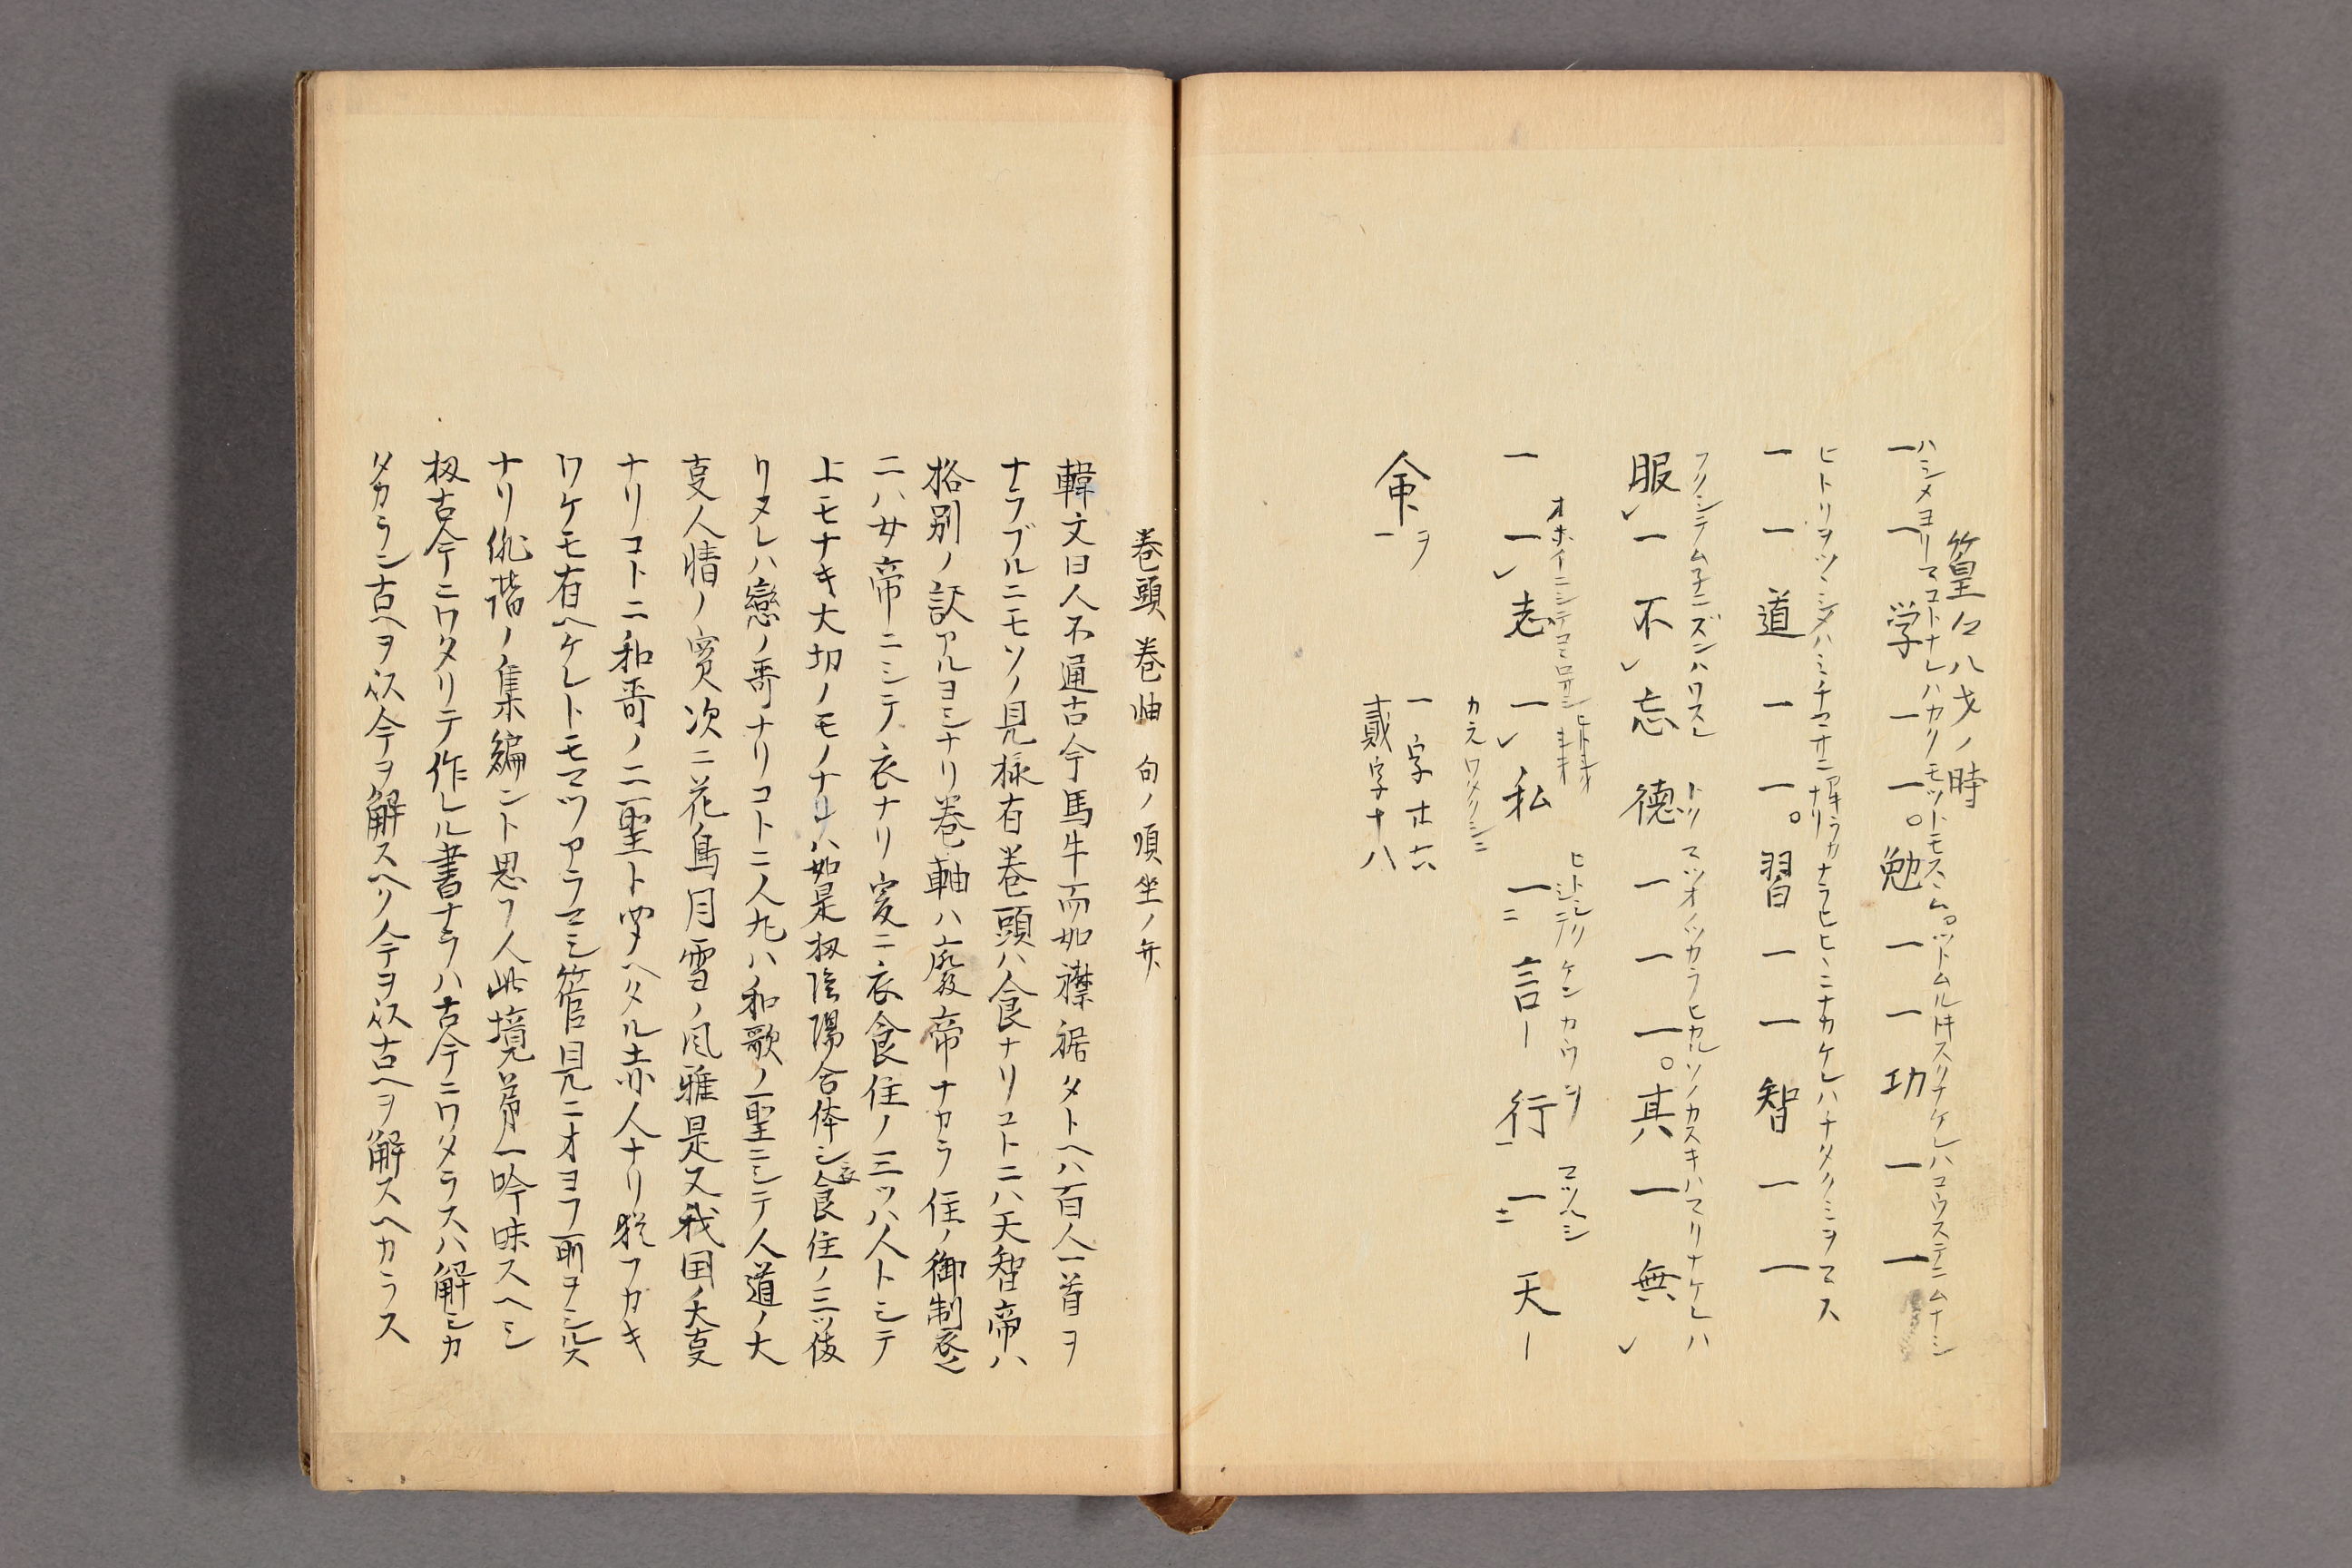 篁公八才ノ時
ハシメヨリマコトナレハカクノモットモスヽムツトムルトキスクナケレハコウステニムナシ
一一学一一。勉一一功一一
ヒトリヲツヽシメハミチマサニアキラカナリナラヒヒヽニナカケレハチタクミヲマス
一一道一一。習一一智一一
フクシテムネニズンハワスレトクマツオノツカラヒカルソノカスキハマリナケレハ
服一不忘徳一一一。其一無
オホイニシテコヽロサシヒトオホヒトシクシテケンカウヲマツヘシ
一一志一私一ニ言一行一ニ天一
カエワタクシニ
命一ヲ
一字廿六
貳字十八
巻頭巻軸句ノ順坐ノ弁
韓文曰人不通古今馬牛而如襟裾タトヘハ百人一首ヲ
ナラブルニモソノ見様有巻頭ハ食ナリコトニハ天智帝ハ
格別ノ訳アルヨシナリ巻軸ハ廢帝ナカラ住ノ御制衣之
二ハ女帝ニシテ衣ナリ爰ニ衣食住ノ三ツハ人トシテ
上モナキ大切ノモノナリハ如是扨陰陽合体シ衣食住ノ三ツ備
リヌレハ戀ノ哥ナリコトニ人丸ハ和歌ノ一聖ニシテ人道ノ大
叓人情ノ實次ニ花鳥月雪ノ風雅是又我国ノ大叓
ナリコトニ和哥ノ二聖ト聞ヘタル赤人ナリ猶フカキ
ワケモ有ヘケレトモマツアラマシ管見ニオヨフ所ヲシルス
ナリ俳諧ノ集編ント思フ人此境着一吟味スヘシ
扨古今ニワタリテ作レル書ナラハ古今ニワタラスハ解シカ
タカラン古ヘヲ以今ヲ解スヘク今ヲ以古ヘヲ解スヘカラス